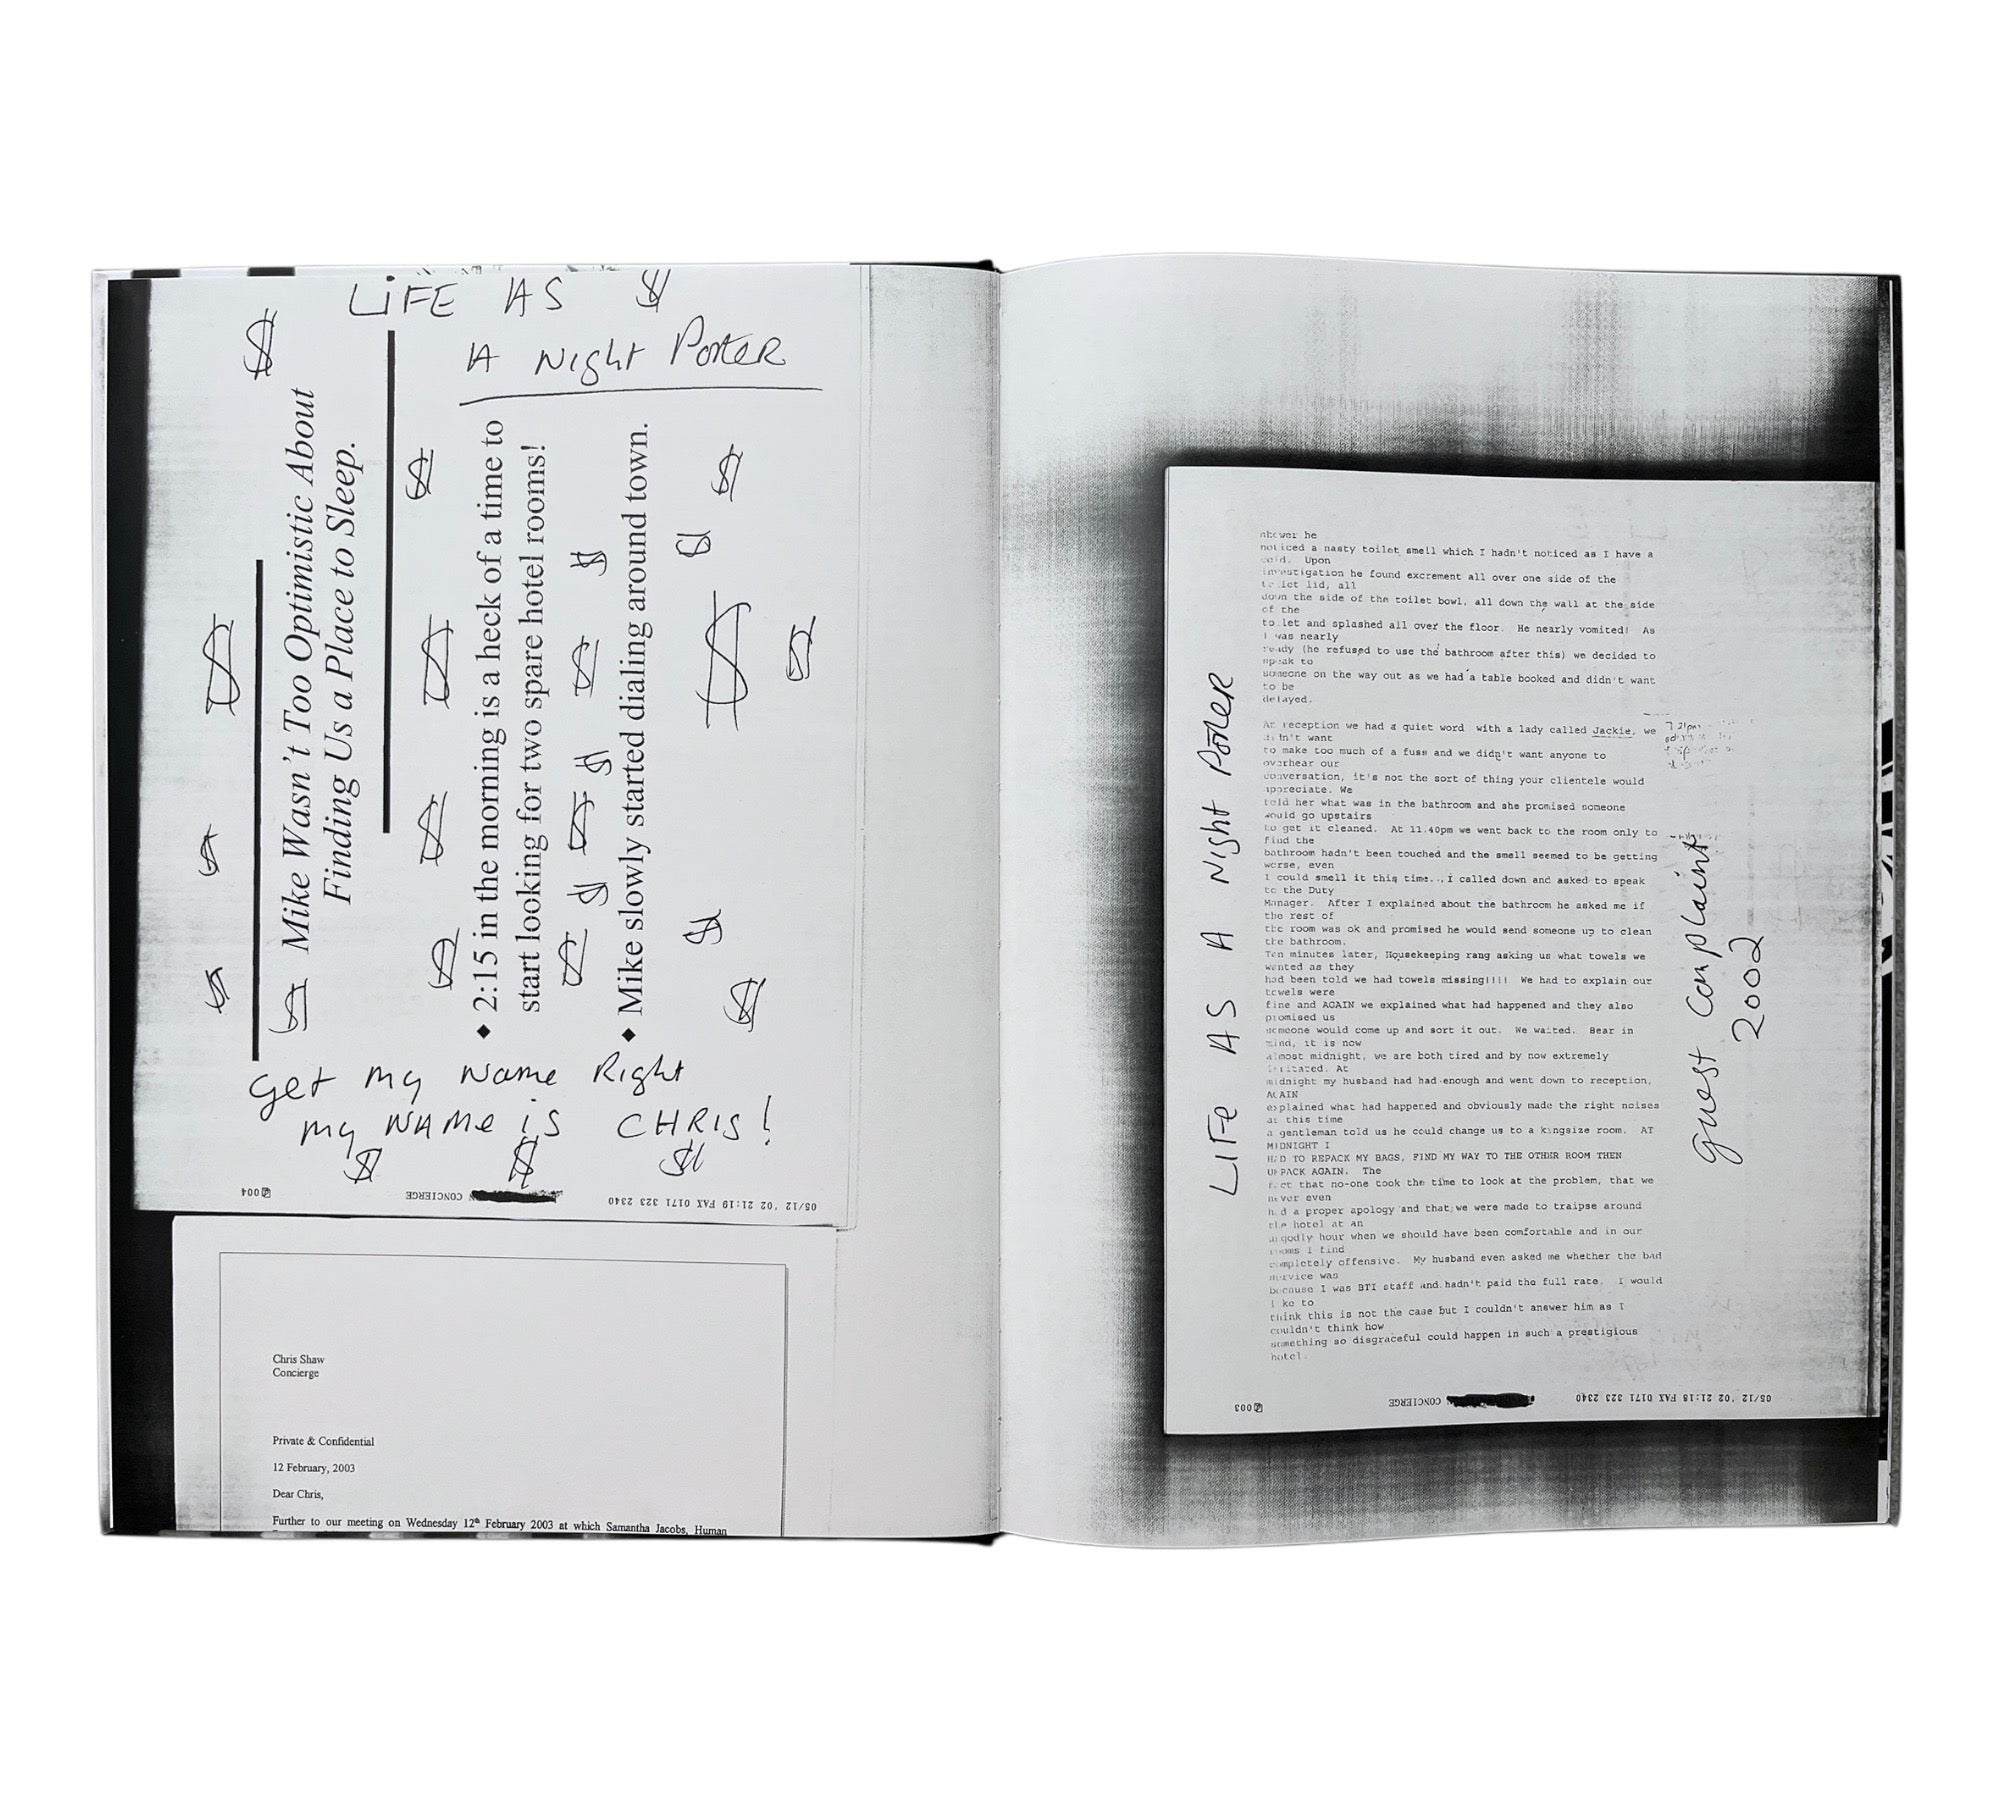 LiFE AS $
A Night Porter
$
Mike Wasn't Too Optimistic About
Finding Us a Place to Sleep.
$
$
$
$
$
$
$
$
$
◆ 2:15 in the morning is a heck of a time to
start looking for two spare hotel rooms!
$
$
$
$
$
$
◆ Mike slowly started dialing around town.
$
$
$
$
$
$
get my Name Right
my NAME is CHRIS!
$ $ $
05/12 '02 21:19 FAX 0171 323 2340
CONCIERGE
004
Chris Shaw
Concierge
Private & Confidential
12 February, 2003
Dear Chris,
Further to our meeting on Wednesday 12th February 2003 at which Samantha Jacobs, Human
LIFe AS A Night Porter
shower he
noticed a nasty toilet smell which I hadn't noticed as I have a
cold. Upon
investigation he found excrement all over one side of the
toilet lid, all
down the side of the toilet bowl, all down the wall at the side
of the
toilet and splashed all over the floor. He nearly vomited! As
I was nearly
ready (he refused to use the bathroom after this) we decided to
speak to
someone on the way out as we had a table booked and didn't want
to be
delayed.
At reception we had a quiet word with a lady called Jackie, we
didn't want
to make too much of a fuss and we didn't want anyone to
overhear our
conversation, it's not the sort of thing your clientele would
appreciate. We
told her what was in the bathroom and she promised someone
would go upstairs
to get it cleaned. At 11.40pm we went back to the room only to
find the
bathroom hadn't been touched and the smell seemed to be getting
worse, even
I could smell it this time... I called down and asked to speak
to the Duty
Manager. After I explained about the bathroom he asked me if
the rest of
the room was ok and promised he would send someone up to clean
the bathroom.
Ten minutes later, Housekeeping rang asking us what towels we
wanted as they
had been told we had towels missing!!!! We had to explain our
towels were
fine and AGAIN we explained what had happened and they also
promised us
someone would come up and sort it out. We waited. Bear in
mind, it is now
almost midnight, we are both tired and by now extremely
irritated. At
midnight my husband had had enough and went down to reception,
AGAIN
explained what had happened and obviously made the right noises
as this time
a gentleman told us he could change us to a kingsize room. AT
MIDNIGHT I
HAD TO REPACK MY BAGS, FIND MY WAY TO THE OTHER ROOM THEN
UNPACK AGAIN. The
fact that no-one took the time to look at the problem, that we
never even
had a proper apology and that we were made to traipse around
the hotel at an
ungodly hour when we should have been comfortable and in our
rooms I find
completely offensive. My husband even asked me whether the bad
service was
because I was BTI staff and hadn't paid the full rate. I would
like to
think this is not the case but I couldn't answer him as I
couldn't think how
something so disgraceful could happen in such a prestigious
hotel.
guest complaint
2002
05/12 '02 21:18 FAX 0171 323 2340
CONCIERGE
003